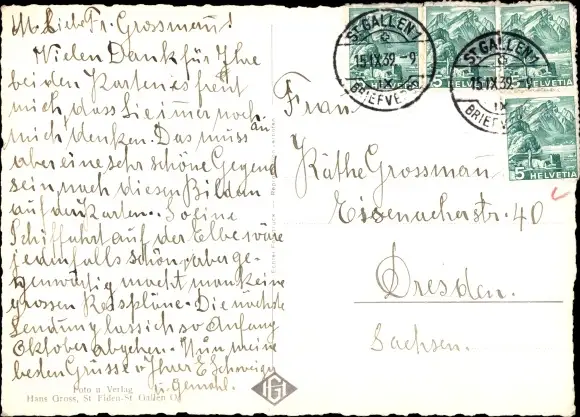 M. Liebe Fr. Grossmann!
Vielen Dank für Ihre
beiden Karten es freut
mich, dass Sie imer noch
an
mich denken. Das muss
aber eine sehr schöne Gegend
sein, nach diesen Bildern
auf den Karten. So eine
Schiffahrt auf der Elbe wäre
jedenfalls schön, aber ge-
genwärtig macht man keine
grossen Reisepläne. Die nächste
Sendung lass ich so Anfang
Oktober abgehen. Nun meine
besten Grüsse v Ihrer E Schweizer
u. Gemahl.
Foto u Verlag
Hans Gross, St Fiden-St Gallen O
HG
ST. GALLEN 1
15.IX.39.-9
IX
BRIEFVERS.
ST. GALLEN 1
15.IX.39.-9
IX
BRIEFVERS.
5 HELVETIA
5 HELVETIA
Frau
Käthe Grossmann
Eisenacherstr. 40
Dresden.
Sachsen.